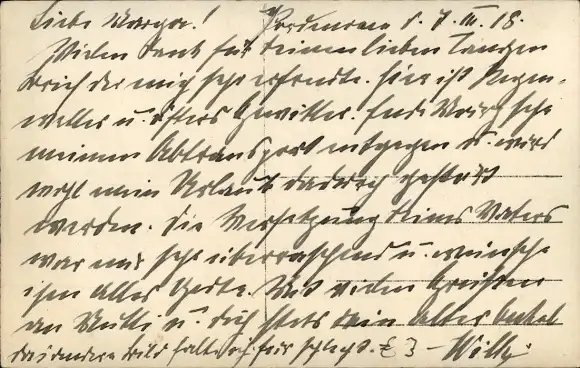 Liebe Marga! Pordenone d. 7. III. 18.
Vielen Dank für Deinen lieben langen
Brief der mich sehr erfreute. Hier ist Regen-
wetter u. öfters Gewitter. Ende März sehe
meinen Abtransport entgegen u. wird
wohl mein Urlaub dadurch gestört
werden. Die Versetzung Deines Vaters
war mir sehr überraschend u. wünsche
ihm alles Gute. Mit vielen Grüßen
an Mutti u. Dich stets Dein alter Onkel
das andere Bild halte ich für schlecht. Willy.